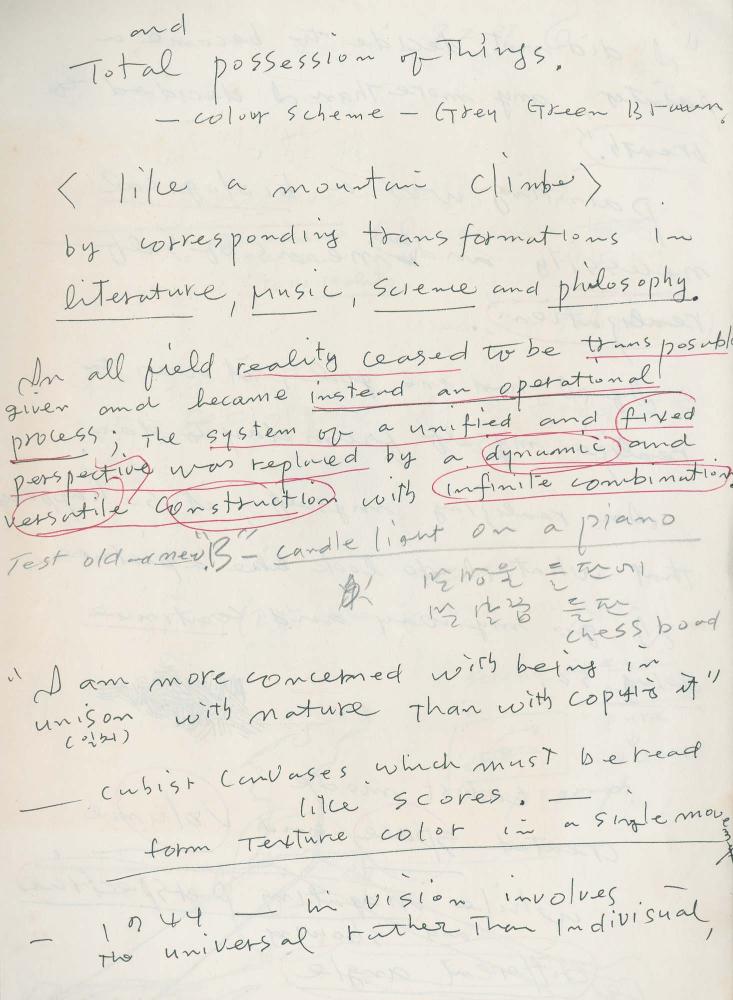 and
Total possession of Things.
— colour scheme — Grey Green Brown,
< like a mountain climbe>
by corresponding transformations in
literature, Music, Science and philosophy.
In all field reality ceased to be transposable
given and became instead an operational
process; The system of a unified and fixed
perspective was replaced by a dynamic and
versatile construction with infinite combination.
Test old "B" — candle light on a piano
들판에
들판
chess boad
"I am more concerned with being in
unison with nature Than with copying it"
(일치)
— cubist canvases which must be read
like scores. —
form Texture color in a single movement
— 1944 — in vision involves —
The universal rather Than Indivisual,